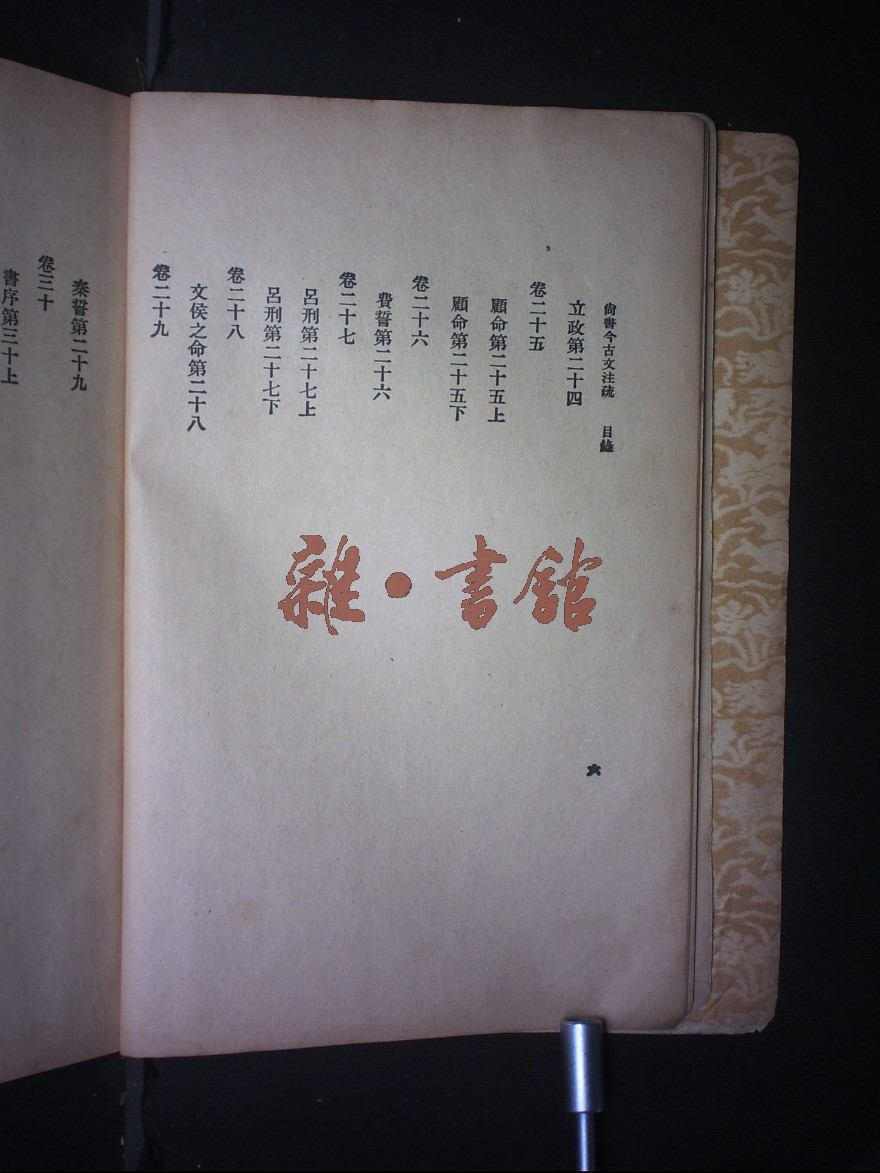 尙書今古文注疏　目錄
立政第二十四
卷二十五
顧命第二十五上
顧命第二十五下
卷二十六
費誓第二十六
卷二十七
呂刑第二十七上
呂刑第二十七下
卷二十八
文侯之命第二十八
卷二十九
六
秦誓第二十九
卷三十
書序第三十上
雜·書館